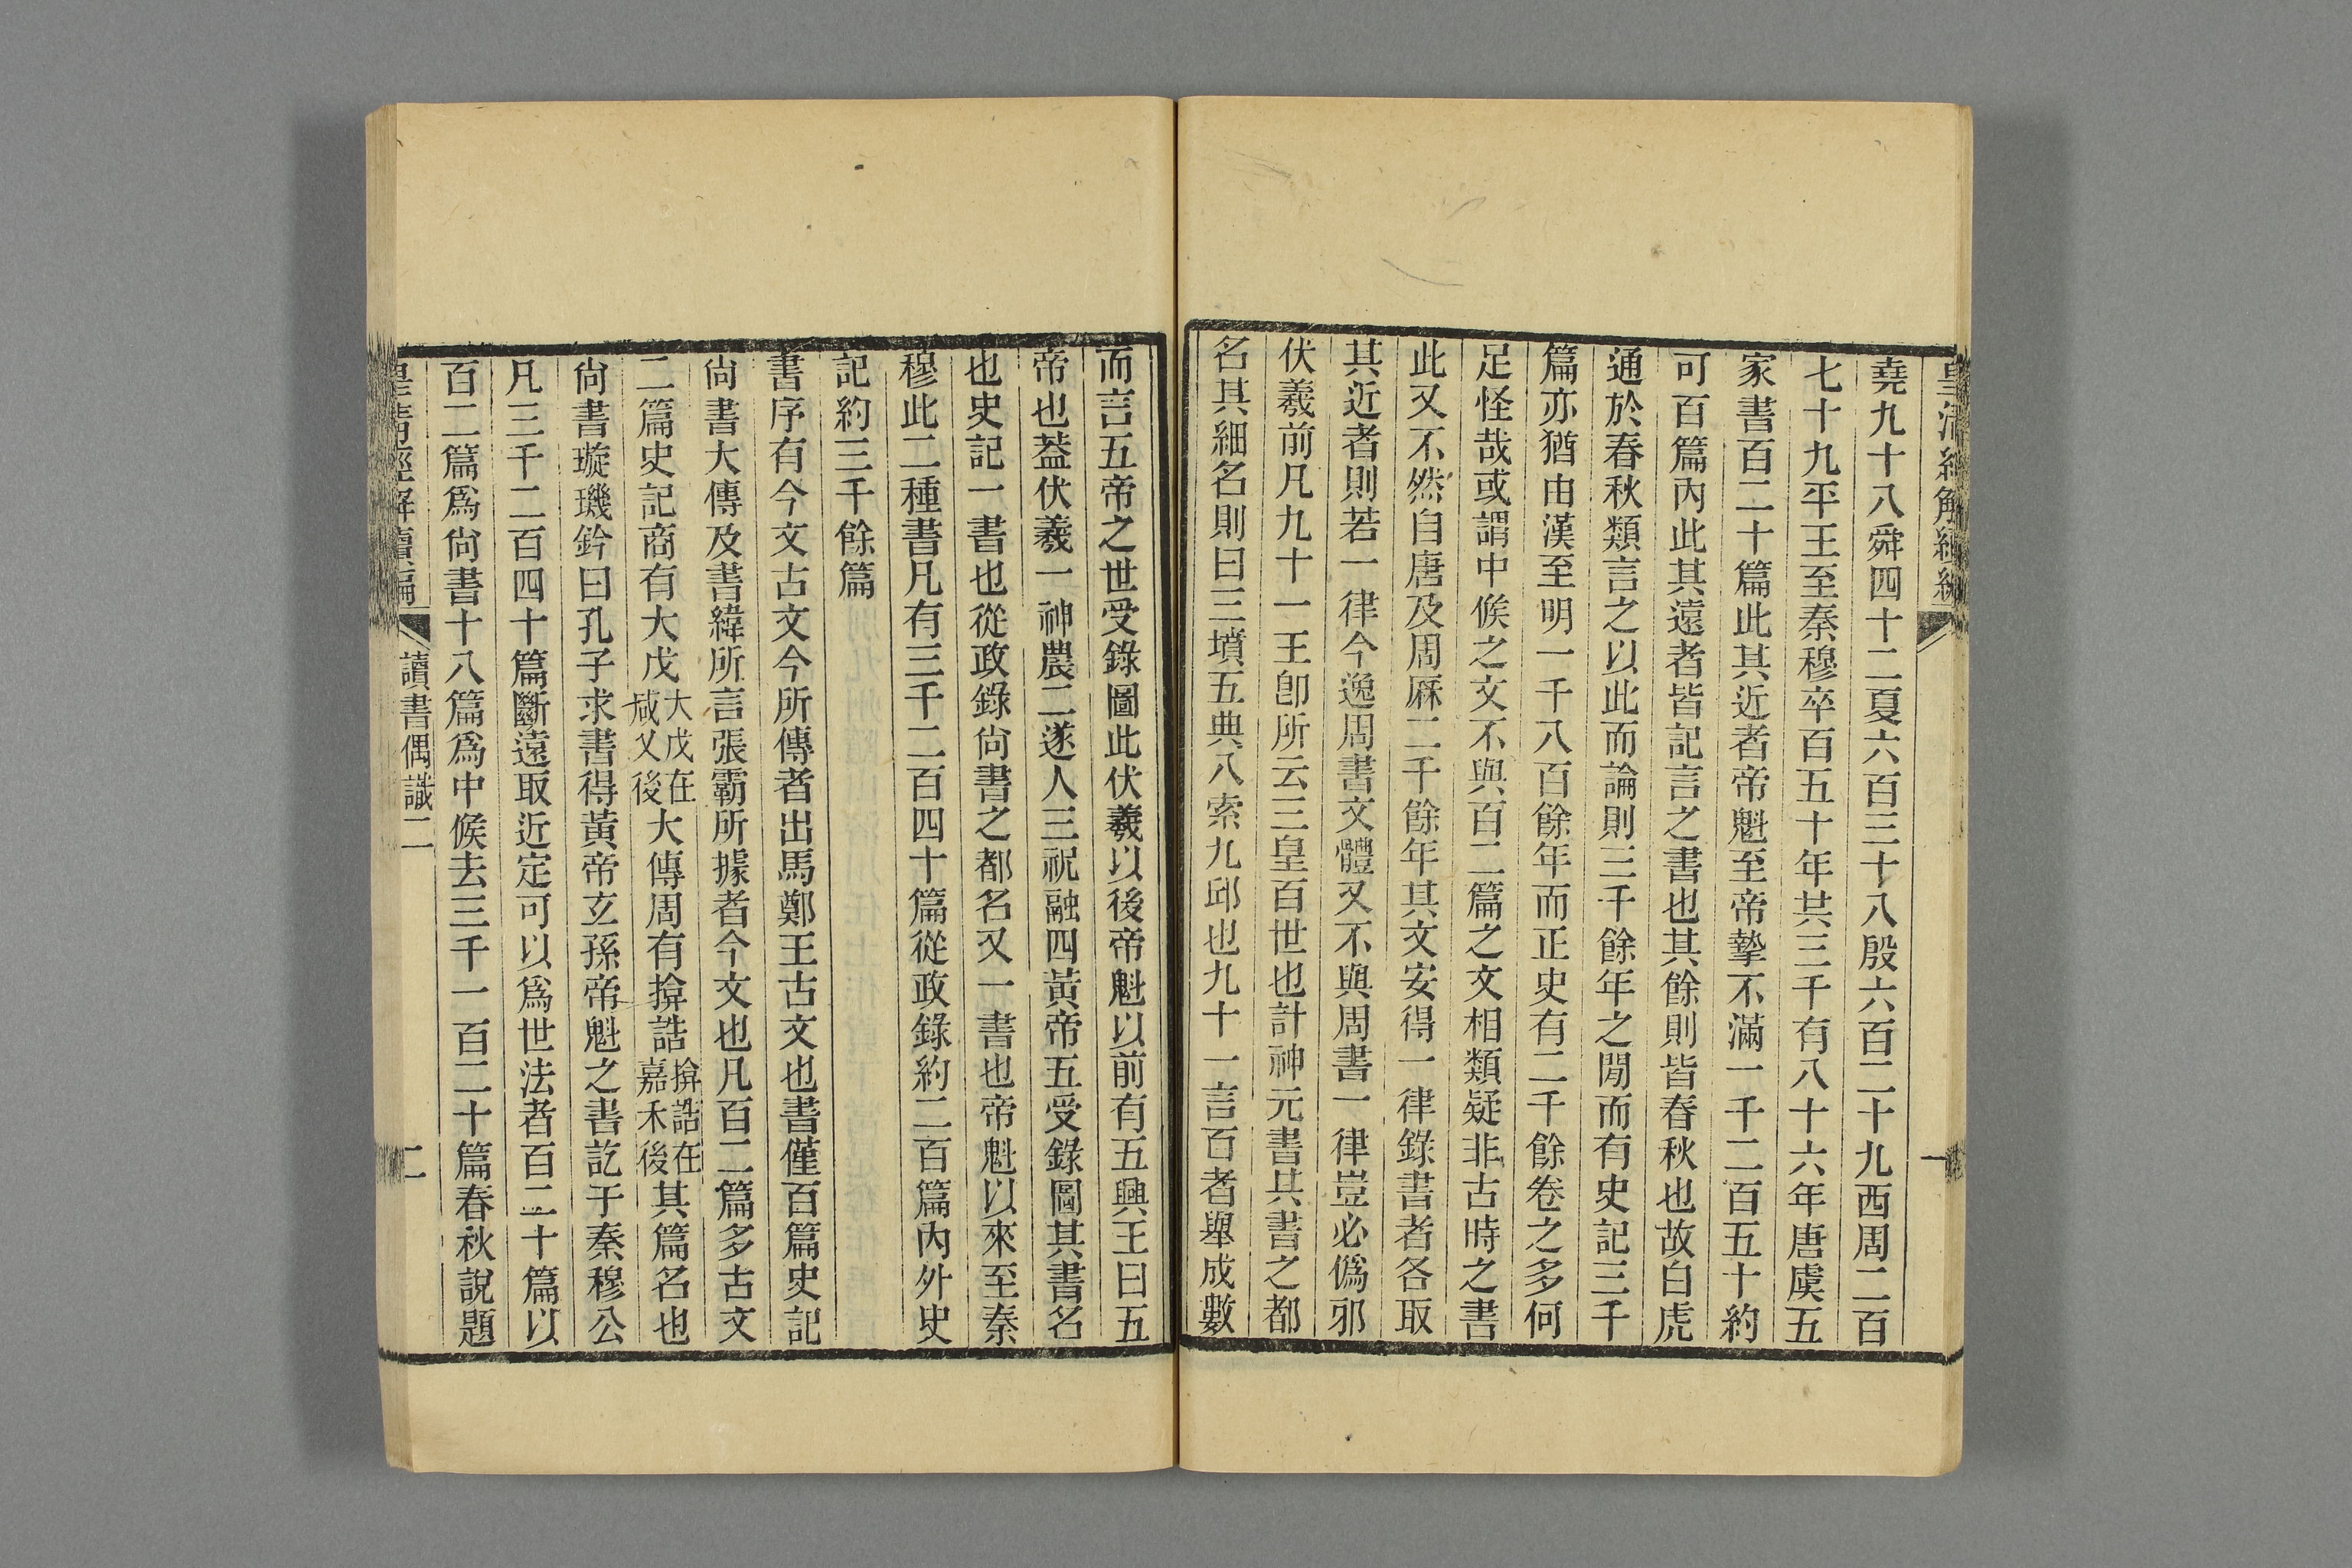 皇清經解續編
一
堯九十八舜四十二夏六百三十八殷六百二十九西周二百
七十九平王至秦穆卒百五十年共三千有八十六年唐虞五
家書百二十篇此其近者帝魁至帝摯不滿一千二百五十約
可百篇內此其遠者皆記言之書也其餘則皆春秋也故白虎
通於春秋類言之以此而論則三千餘年之閒而有史記三千
篇亦猶由漢至明一千八百餘年而正史有二千餘卷之多何
足怪哉或謂中候之文不與百二篇之文相類疑非古時之書
此又不然自唐及周厤二千餘年其文安得一律錄書者各取
其近者則若一律今逸周書文體又不與周書一律豈必僞邪
伏羲前凡九十一王卽所云三皇百世也計神元書其書之都
名其細名則曰三墳五典八索九邱也九十一言百者舉成數
而言五帝之世受錄圖此伏羲以後帝魁以前有五興王曰五
帝也葢伏羲一神農二遂人三祝融四黃帝五受錄圖其書名
也史記一書也從政錄尙書之都名又一書也帝魁以來至秦
穆此二種書凡有三千二百四十篇從政錄約二百篇內外史
記約三千餘篇
書序有今文古文今所傳者出馬鄭王古文也書僅百篇史記
尙書大傳及書緯所言張霸所據者今文也凡百二篇多古文
二篇史記商有大戊大戊在咸乂後大傳周有揜誥揜誥在嘉禾後其篇名也
尙書璇璣鈐曰孔子求書得黃帝玄孫帝魁之書訖于秦穆公
凡三千二百四十篇斷遠取近定可以爲世法者百二十篇以
百二篇爲尙書十八篇爲中候去三千一百二十篇春秋說題
皇清經解續編
讀書偶識二
二